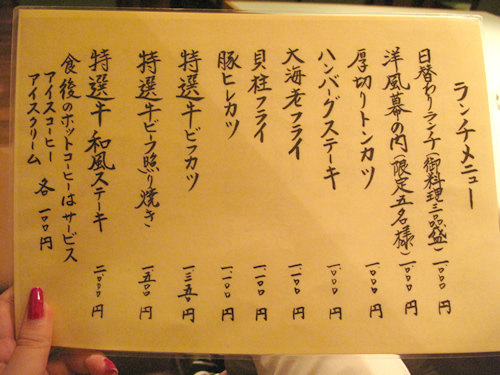 ランチメニュー
日替わりランチ(御料理三品盛) 一.〇〇〇円
洋風幕の内(限定五名様) 一.〇〇〇円
厚切りトンカツ 一.〇〇〇円
ハンバーグステーキ 一.〇〇〇円
大海老フライ 一.一〇〇円
貝柱フライ 一.一〇〇円
豚ヒレカツ 一.一〇〇円
特選牛ビフカツ 一.三五〇円
特選牛ビーフ照り焼き 一.五〇〇円
特選牛 和風ステーキ 二.〇〇〇円
食後のホットコーヒーはサービス
アイスコーヒー
アイスクリーム 各一〇〇円